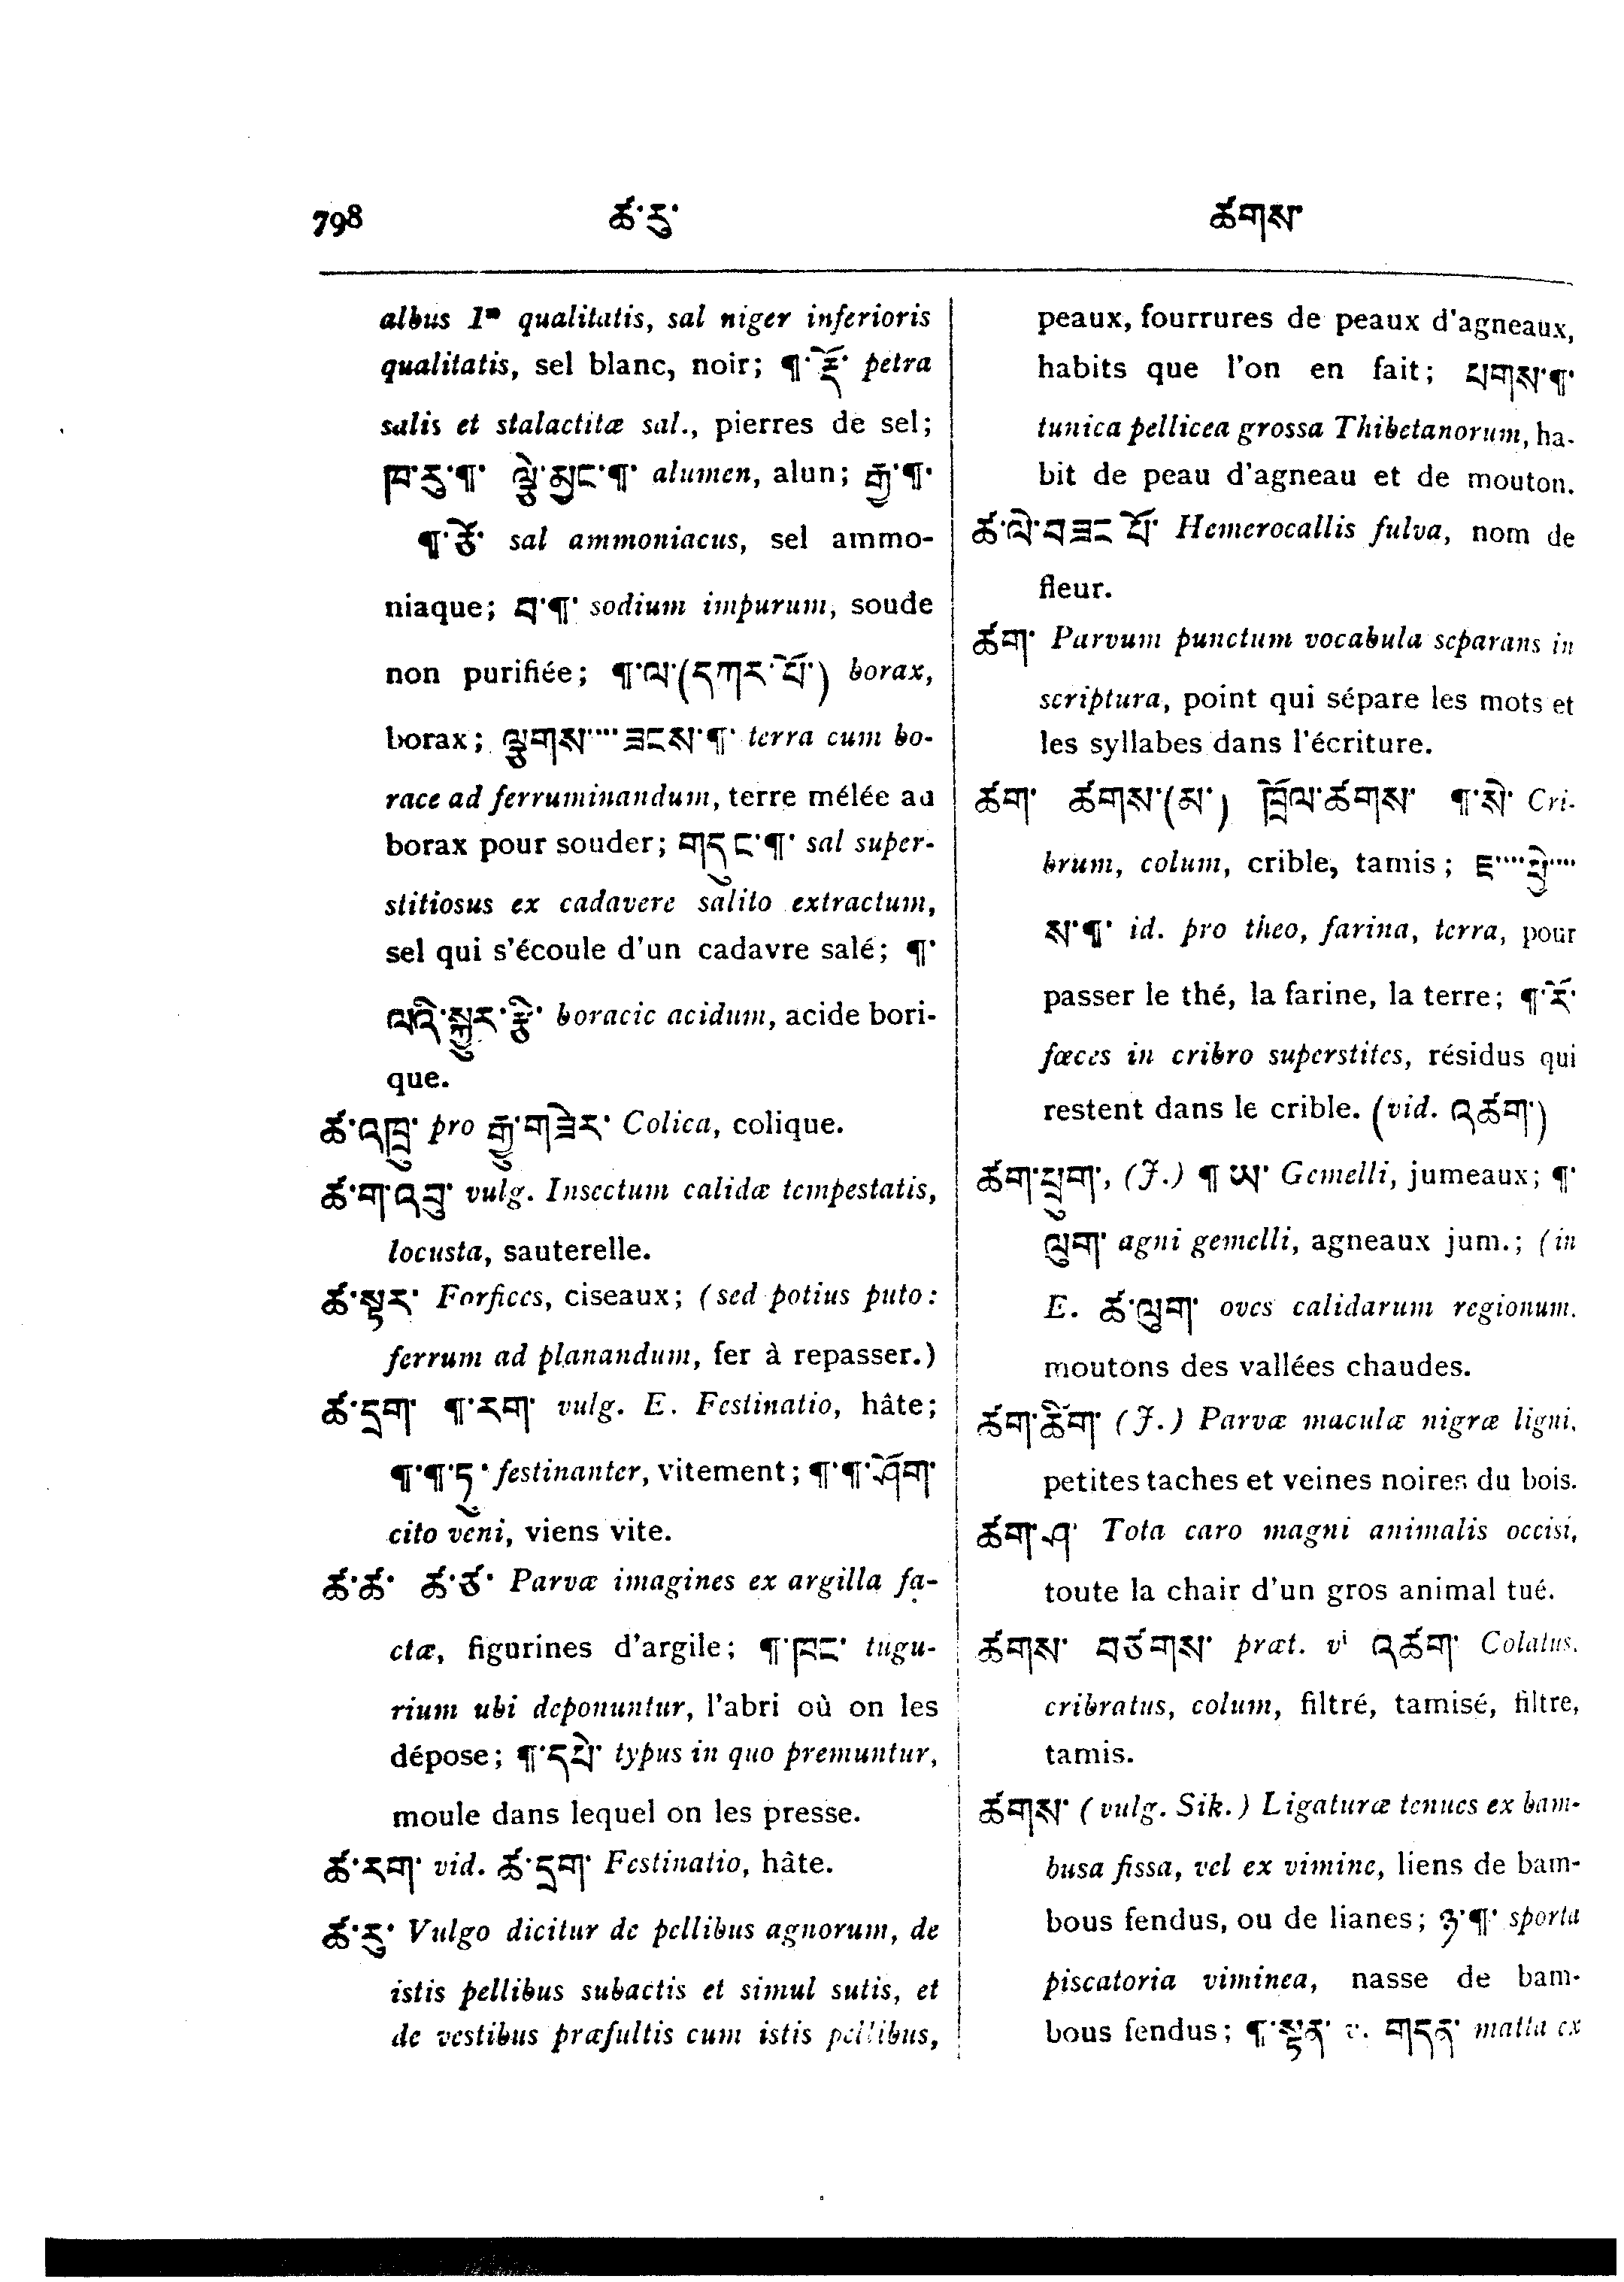 798 ཚ་རུ་ ཚགས་
albus Iᵃᵉ qualitatis, sal niger inferioris
qualitatis, sel blanc, noir; ¶་རྡོ་ petra
salis et stalactitæ sal., pierres de sel;
ཁ་རུ་¶་ ལྕེ་མྱང་¶་ alumen, alun; རྒྱ་¶་
¶་ཙོ་ sal ammoniacus, sel ammo-
niaque; བ་¶་ sodium impurum, soude
non purifiée; ¶་ལ་(དཀར་པོ་) borax,
borax; ལྕགས་༌༌༌ཟངས་¶་ terra cum bo-
race ad ferruminandum, terre mélée au
borax pour souder; གདུང་¶་ sal super-
stitiosus ex cadavere salito extractum,
sel qui s'écoule d'un cadavre salé; ¶་
ལའི་སྐྱུར་རྩི་ boracic acidum, acide bori-
que.
ཚ་འཁྲུ་ pro རྒྱུ་གཟེར་ Colica, colique.
ཚ་ག་འབུ་ vulg. Insectum calidæ tempestatis,
locusta, sauterelle.
ཚ་སྟར་ Forfices, ciseaux; (sed potius puto:
ferrum ad planandum, fer à repasser.)
ཚ་དྲག་ ¶་རག་ vulg. E. Festinatio, hâte;
¶་¶་ཏུ་ festinanter, vitement; ¶་¶་ཤོག་
cito veni, viens vite.
ཚ་ཚ་ ཚ་ཙ་ Parvæ imagines ex argilla fa-
ctæ, figurines d'argile; ¶་ཁང་ tugu-
rium ubi deponuntur, l'abri où on les
dépose; ¶་དཔེ་ typus in quo premuntur,
moule dans lequel on les presse.
ཚ་རག་ vid. ཚ་དྲག་ Festinatio, hâte.
ཚ་རུ་ Vulgo dicitur de pellibus agnorum, de
istis pellibus subactis et simul sutis, et
de vestibus præfultis cum istis pellibus,
peaux, fourrures de peaux d'agneaux,
habits que l'on en fait; པགས་¶་
tunica pellicea grossa Thibetanorum, ha-
bit de peau d'agneau et de mouton.
ཚ་ལེ་བཟང་པོ་ Hemerocallis fulva, nom de
fleur.
ཚག་ Parvum punctum vocabula separans in
scriptura, point qui sépare les mots et
les syllabes dans l'écriture.
ཚག་ ཚགས་(མ་) ཁྲོལ་ཚགས་ ¶་སེ་ Cri-
brum, colum, crible, tamis; ཇ༌༌༌༌ཕྱེ༌༌༌༌
ས་¶་ id. pro theo, farina, terra, pour
passer le thé, la farine, la terre; ¶་རོ་
fæces in cribro superstites, résidus qui
restent dans le crible. (vid. འཚག་)
ཚག་ཕྲུག་, (J.) ¶ ཡ་ Gemelli, jumeaux; ¶་
ལུག་ agni gemelli, agneaux jum.; (in
E. ཚ་ལུག་ oves calidarum regionum.
moutons des vallées chaudes.
ཚག་ཚིག་ (J.) Parvæ maculæ nigræ ligni,
petites taches et veines noires du bois.
ཚག་ཤ་ Tota caro magni animalis occisi,
toute la chair d'un gros animal tué.
ཚགས་ བཙགས་ præt. vⁱ འཚག་ Colatus,
cribratus, colum, filtré, tamisé, filtre,
tamis.
ཚགས་ (vulg. Sik.) Ligaturæ tenues ex bam-
busa fissa, vel ex vimine, liens de bam-
bous fendus, ou de lianes; ཉ་¶་ sporta
piscatoria viminea, nasse de bam-
bous fendus; ¶་སྟན་ v. གདན་ matta ex